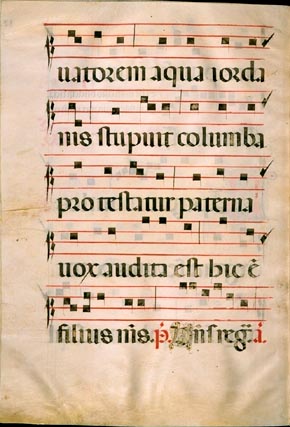 uatorem aqua iorda
nis stupuit columba
protestatur paterna
uox audita est hic ē
filius m̄s. p̄.